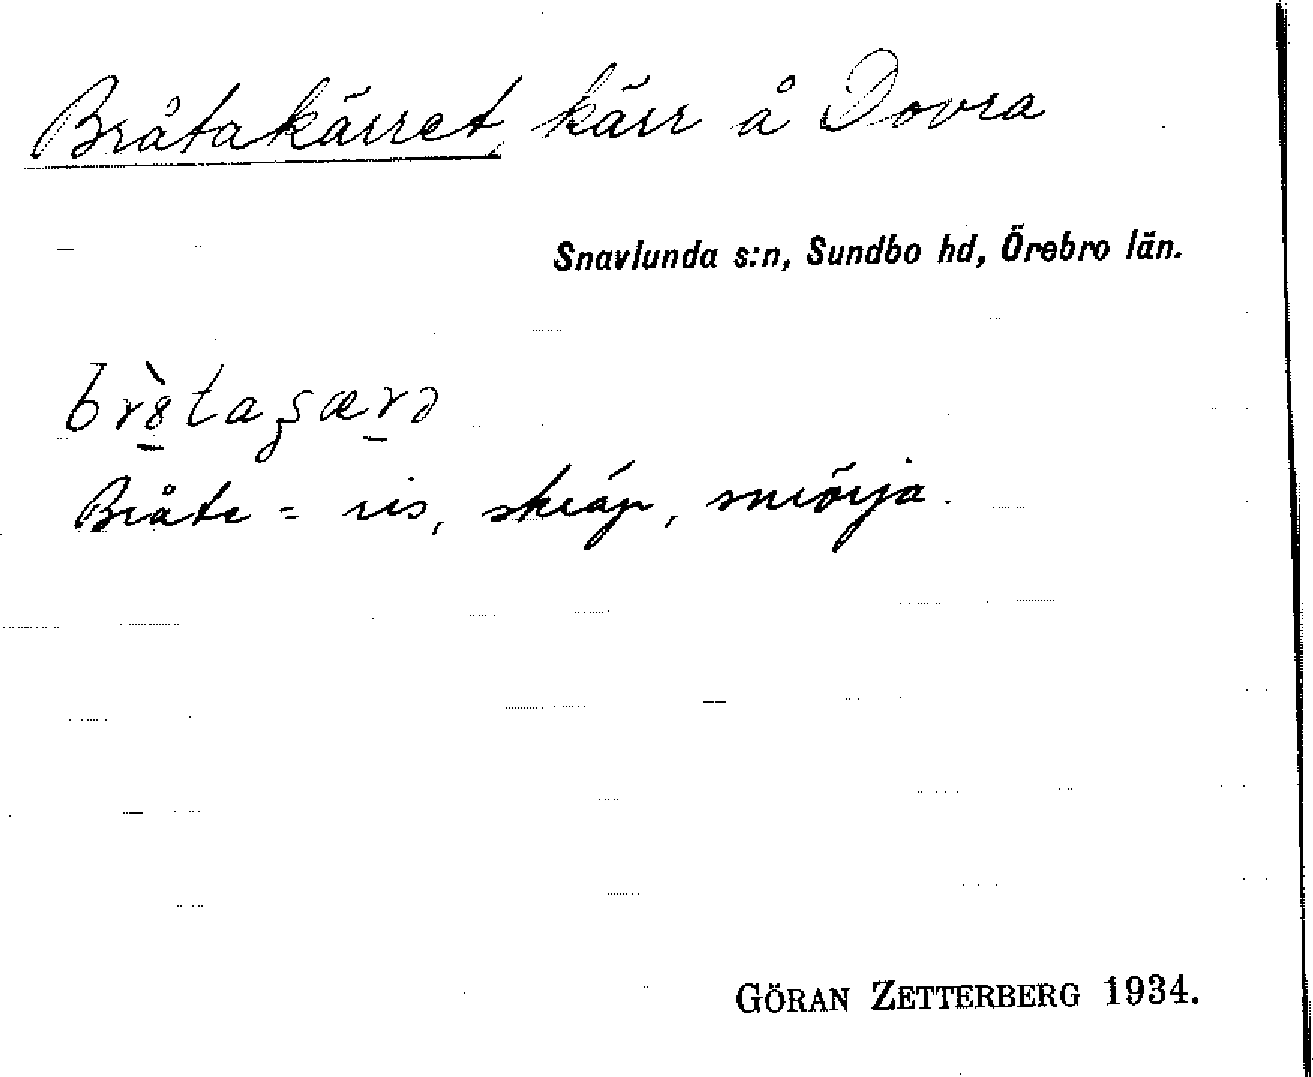 Bråtakärret, kärr å Dovra
Snavlunda s:n, Sundbo hd, Örebro län.
Bråte = ris, skräp, smörja.
GÖRAN ZETTERBERG 1934.